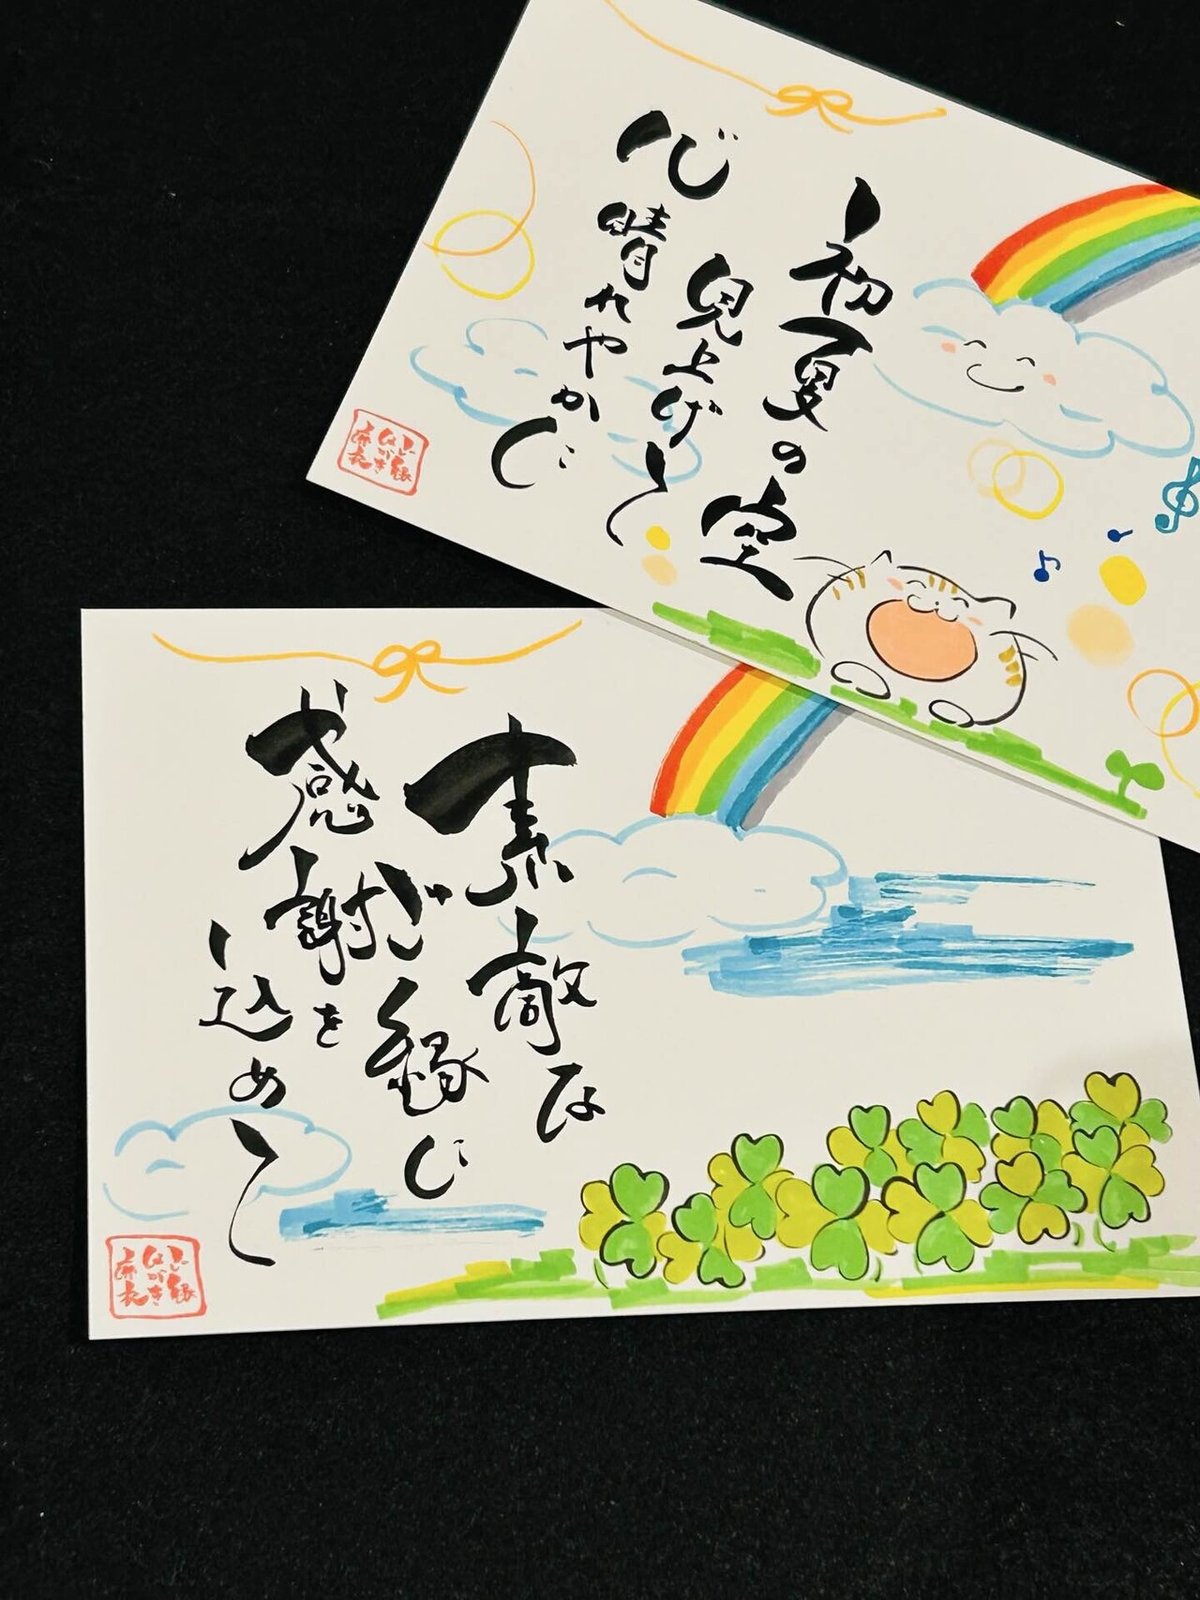 初夏の空
見上げて
心晴れやかに
素敵な
ご縁に
感謝を
込めて